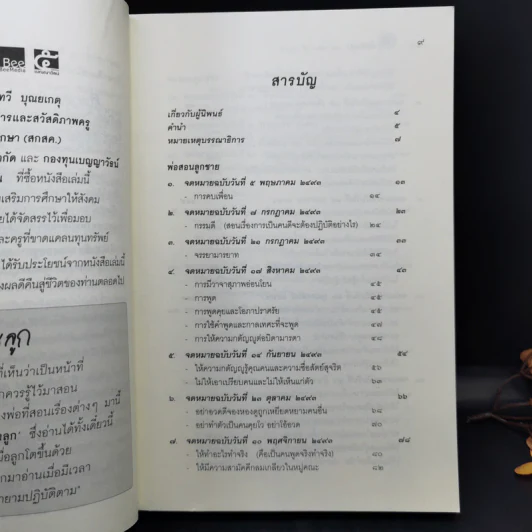 Bee
ทวี บุณยเกตุ
ารและสวัสดิภาพครู
กษา (สกสค.)
กัด และ กองทุนเบญญาวัธน์
ที่ซื้อหนังสือเล่มนี้
เสริมการศึกษาให้สังคม
ยได้จัดสรรไว้เพื่อมอบ
และครูที่ขาดแคลนทุนทรัพย์
ได้รับประโยชน์จากหนังสือเล่มนี้
งผลดีคืนสู่ชีวิตของท่านตลอดไป
ลูก
ที่เห็นว่าเป็นหน้าที่
กควรรู้ไว้มาสอน
งพ่อที่สอนเรื่องต่างๆ มานี้
ลูก' ซึ่งอ่านได้ทั้งเดี๋ยวนี้
มื่อลูกโตขึ้นด้วย
กมาอ่านเมื่อมีเวลา
ายามปฏิบัติตาม"
๙
สารบัญ
เกี่ยวกับผู้นิพนธ์ ๔
คำนำ ๕
หมายเหตุบรรณาธิการ ๗
พ่อสอนลูกชาย
๑. จดหมายฉบับวันที่ ๕ พฤษภาคม ๒๔๙๓ ๑๓
- การคบเพื่อน ๑๔
๒. จดหมายฉบับวันที่ ๗ กรกฎาคม ๒๔๙๓ ๒๓
- กรรมดี (สอนเรื่องการเป็นคนดีจะต้องปฏิบัติอย่างไร) ๒๔
๓. จดหมายฉบับวันที่ ๒๑ กรกฎาคม ๒๔๙๓ ๓๓
- จรรยามารยาท ๓๔
๔. จดหมายฉบับวันที่ ๑๗ สิงหาคม ๒๔๙๓ ๔๓
- การมีวาจาสุภาพอ่อนโยน ๔๕
- การพูด ๔๕
- การพูดคุยและโอภาปราศรัย ๔๕
- การใช้คำพูดและกาลเทศะที่จะพูด ๔๗
- การให้ความกตัญญูต่อบิดามารดา ๔๘
๕. จดหมายฉบับวันที่ ๑๔ กันยายน ๒๔๙๓ ๕๔
- ให้ความกตัญญูรู้คุณคนและความซื่อสัตย์สุจริต ๕๖
- ไม่ให้เอาเปรียบคนและไม่ให้เห็นแก่ตัว ๖๓
๖. จดหมายฉบับวันที่ ๒ ตุลาคม ๒๔๙๓ ๖๖
- อย่าอวดดีจองหองดูถูกเหยียดหยามคนอื่น ๖๘
- อย่าทำตัวเป็นคนคุยโว อย่าโอ้อวด ๗๐
๗. จดหมายฉบับวันที่ ๑๐ พฤศจิกายน ๒๔๙๓ ๗๘
- ให้ทำอะไรทำจริง (คือเป็นคนพูดจริงทำจริง) ๘๐
- ให้มีความสามัคคีกลมเกลียวในหมู่คณะ ๘๒